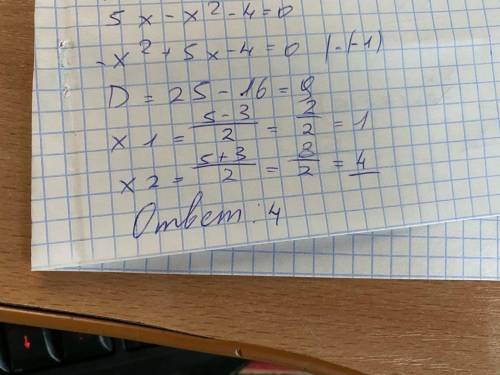 5x - x² - 4 = 0
-x² + 5x - 4 = 0 | · (-1)
D = 25 - 16 = 9
x1 = \frac{5-3}{2} = \frac{2}{2} = 1
x2 = \frac{5+3}{2} = \frac{8}{2} = 4
Ответ: 4